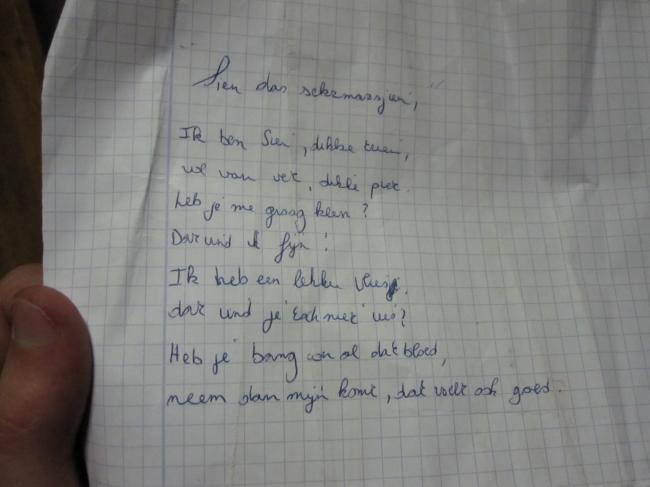 Sien das sekzmarsjien,
Ik ben Sien, dikke trien,
vol van vet, dikke pret.
heb je me graag klein?
Dat vind ik fijn!
Ik heb een lekker vlies,
dat vind je toch niet vies?
Heb je bang van al dat bloed,
neem dan mijn kont, dat voelt ook goed.